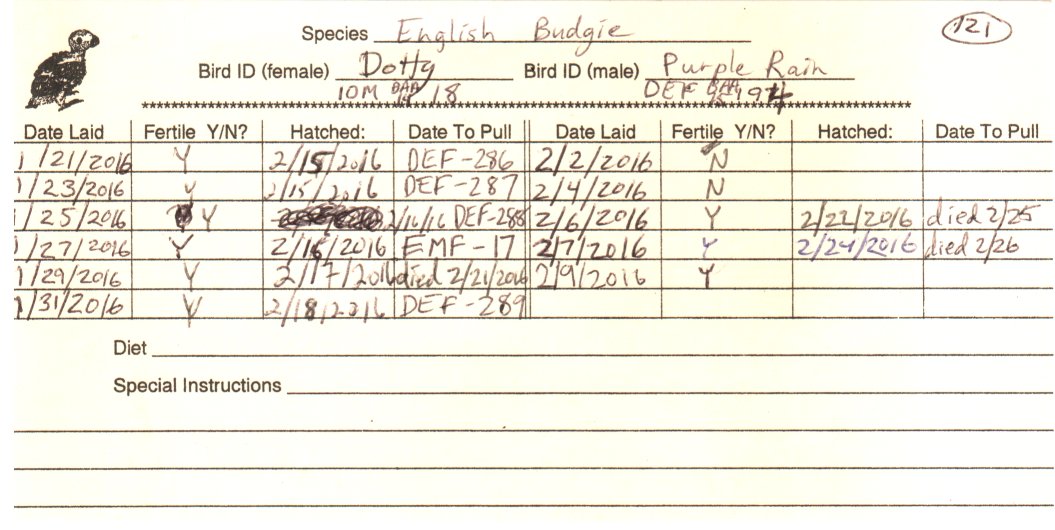 Species English Budgie 121
Bird ID (female) Dotty Bird ID (male) Purple Rain
10M BAA 18 DEF 194
****************************************************************************************
Date Laid Fertile Y/N? Hatched: Date To Pull Date Laid Fertile Y/N? Hatched: Date To Pull
1/21/2016 Y 2/15/2016 DEF-286 2/2/2016 N
1/23/2016 y 2/15/2016 DEF-287 2/4/2016 N
1/25/2016 Y 2/16/16 DEF-288 2/6/2016 Y 2/22/2016 died 2/25
1/27/2016 Y 2/16/2016 EMF-17 2/7/2016 Y 2/24/2016 died 2/26
1/29/2016 Y 2/17/2016 died 2/21/2016 2/9/2016 Y
1/31/2016 Y 2/18/2016 DEF-289
Diet
Special Instructions